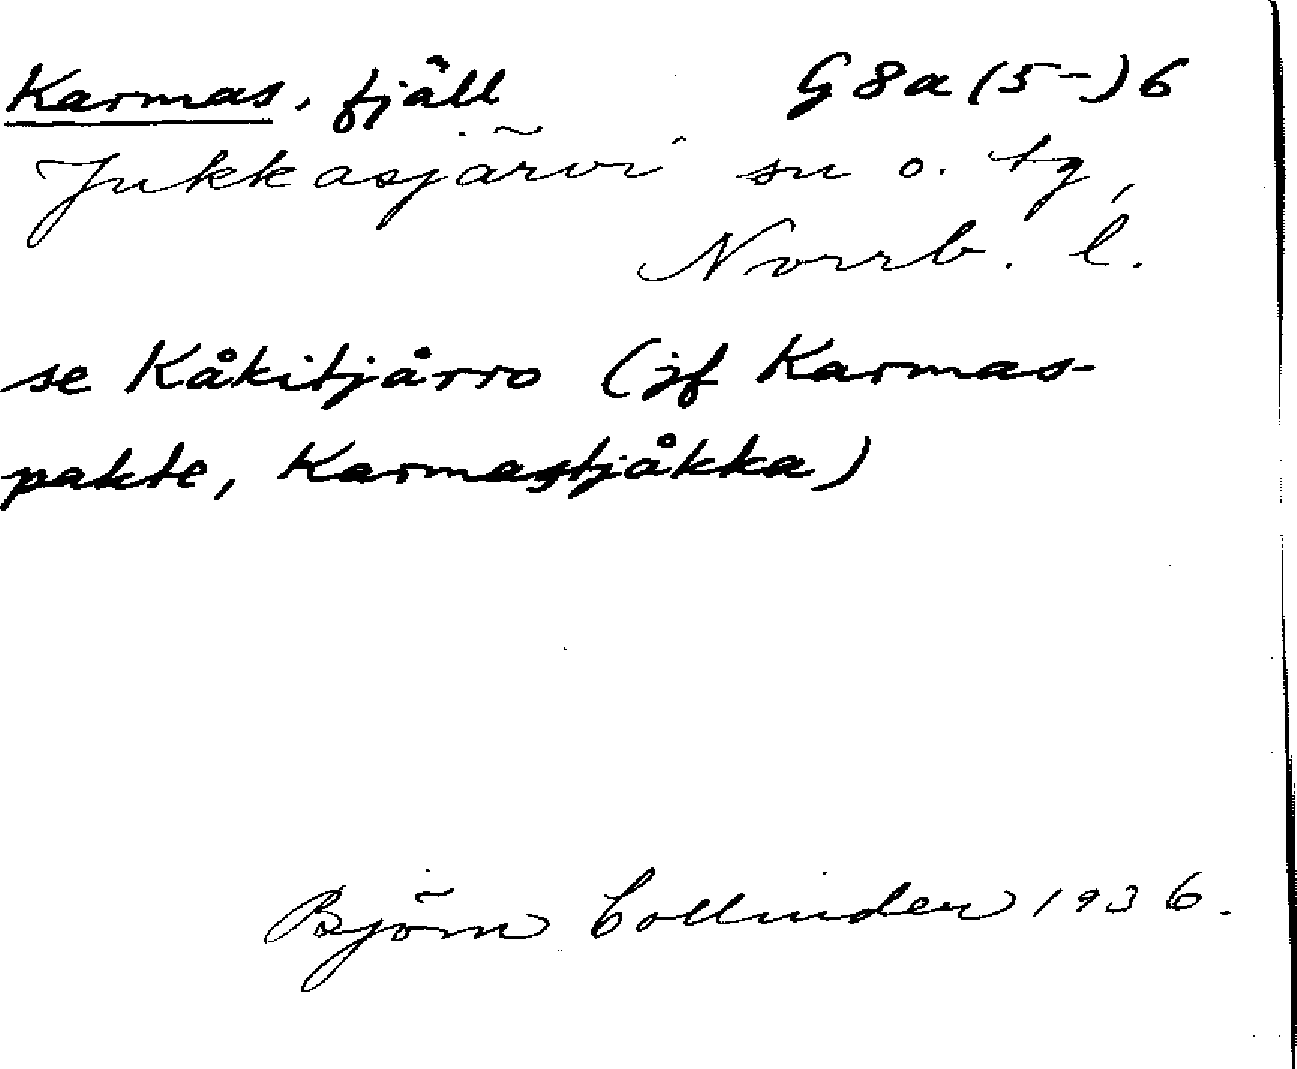 Karmas, fjäll G8a(5-)6
Jukkasjärvi sn o. tg,
Norrb. l.
se Kåkitjårro (jf Karmas-
pakte, Karmastjåkka)
Björn Collinder 1936.